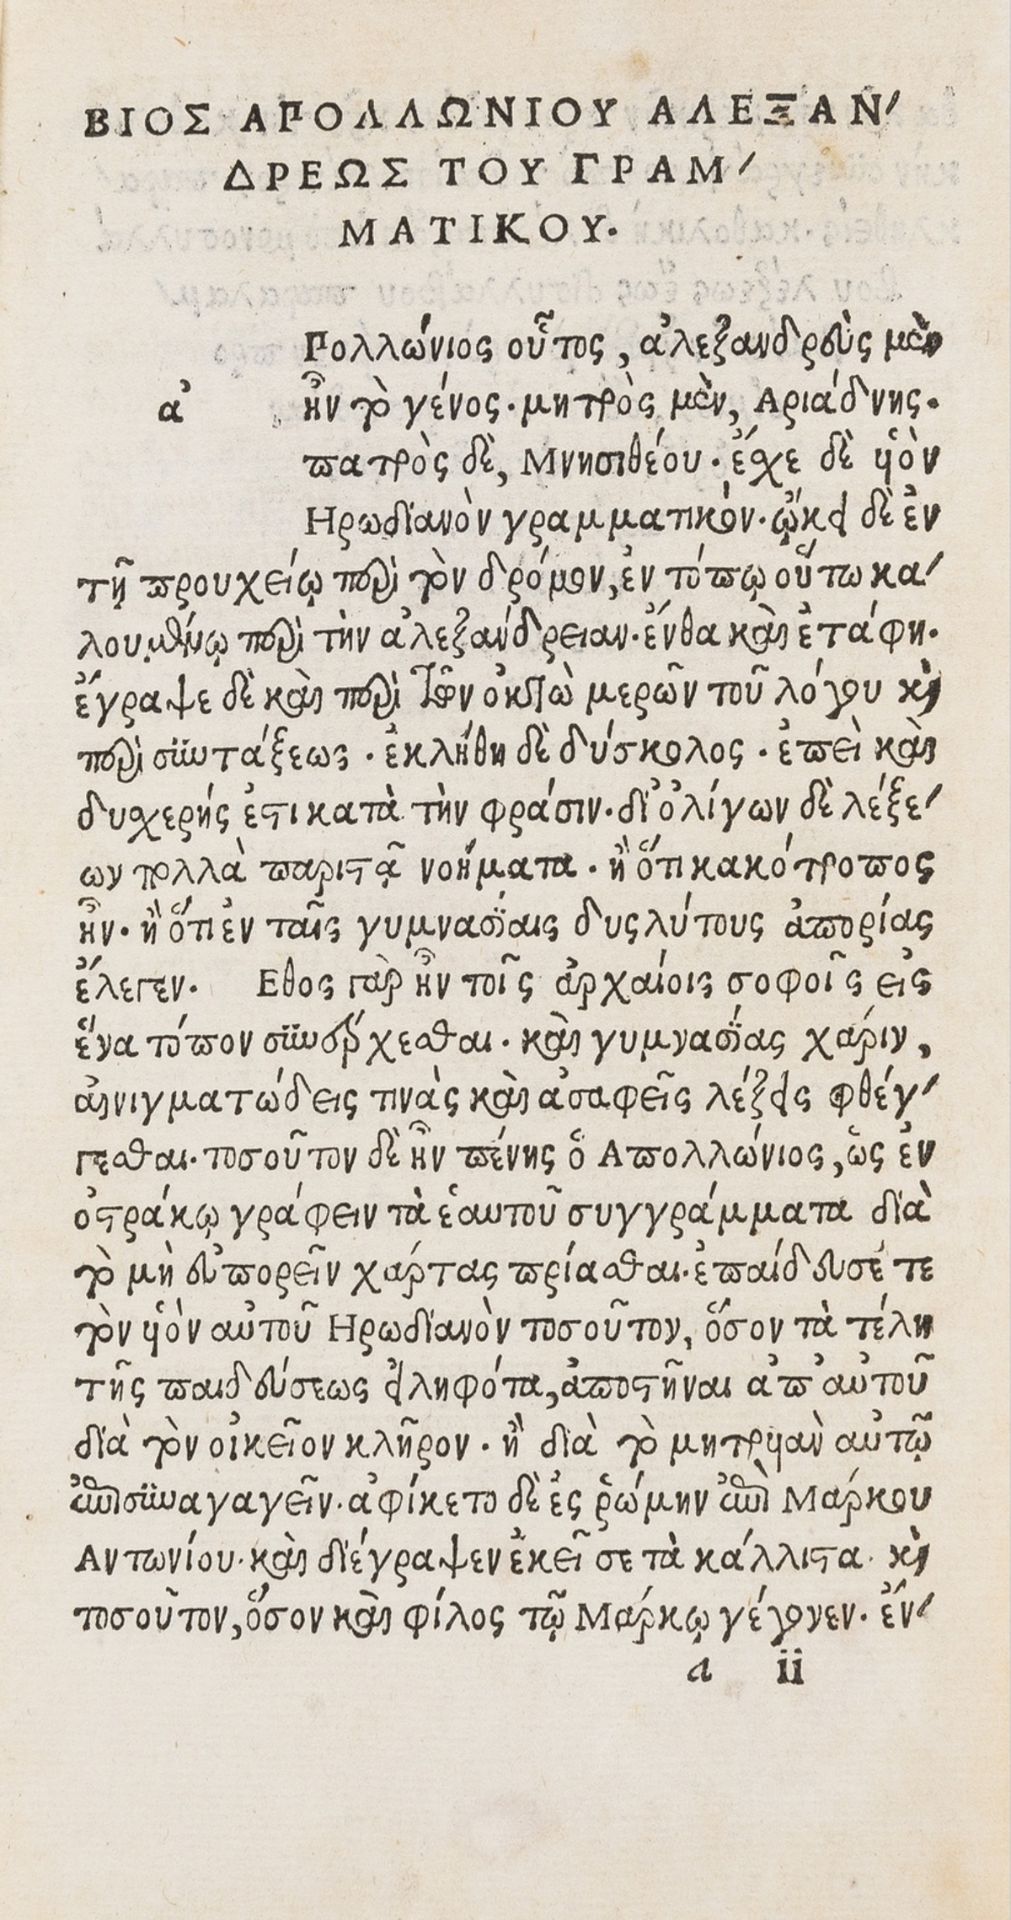 ΒΙΟΣ ΑΠΟΛΛΩΝΙΟΥ ΑΛΕΞΑΝ/
ΔΡΕΩΣ ΤΟΥ ΓΡΑΜ/
ΜΑΤΙΚΟΥ.
Πολλώνιος οὗτος, ἀλεξανδρεὺς μὲν
ἀ ἦν τὸ γένος. μητρὸς μὲν, Αριάδνης.
πατρὸς δὲ, Μνησιθέου. ἔχε δὲ υἱὸν
Ηρωδιανὸν γραμματικόν. ᾤκει δὲ ἐν
τῇ προυχείῳ περὶ τὸν δρόμον, ἐν τόπῳ οὕτω κα/
λουμένῳ περὶ τὴν ἀλεξανδρειαν. ἔνθα καὶ ἐτάφη.
ἔγραψε δὲ καὶ περὶ τῶν ὀκτὼ μερῶν τοῦ λόγου καὶ
περὶ συντάξεως. ἐκλήθη δὲ δύσκολος. ἐπεὶ καὶ
δυχερής ἐστι κατὰ τὴν φράσιν. δι' ὀλίγων δὲ λέξε/
ων πολλὰ παριστᾷ νοήματα. ἢ ὅτι κακότροπος
ἦν. ἢ ὅτι ἐν ταῖς γυμνασίαις δυςλύτους ἀπορίας
ἔλεγεν. Εθος γὰρ ἦν τοῖς ἀρχαίοις σοφοῖς εἰς
ἕνα τόπον συνέρχεσθαι. καὶ γυμνασίας χάριν,
αἰνιγματώδεις τινὰς καὶ ἀσαφεῖς λέξεις φθέγ/
γεσθαι. τοσοῦτον δὲ ἦν πένης ὁ Απολλώνιος, ὡς ἐν
ὀστράκῳ γράφειν τὰ ἑαυτοῦ συγγράμματα διὰ
τὸ μὴ εὐπορεῖν χάρτας πρίασθαι. ἐπαίδευσέ τε
τὸν υἱὸν αὐτοῦ Ηρωδιανὸν τοσοῦτον, ὅσον τὰ τέλη
τῆς παιδεύσεως εἰληφότα, ἀποστῆναι ἀπ' αὐτοῦ
διὰ τὸν οἰκεῖον κλῆρον. ἢ διὰ τὸ μητρυιὰν αὐτῷ
ἐπισυναγαγεῖν. ἀφίκετο δὲ ἐς ῥώμην ἐπὶ Μάρκου
Αντωνίου. καὶ διέγραψεν ἐκεῖσε τὰ κάλλιστα. καὶ
τοσοῦτον, ὅσον καὶ φίλος τῷ Μάρκῳ γέγονεν. ἔν/
a ii